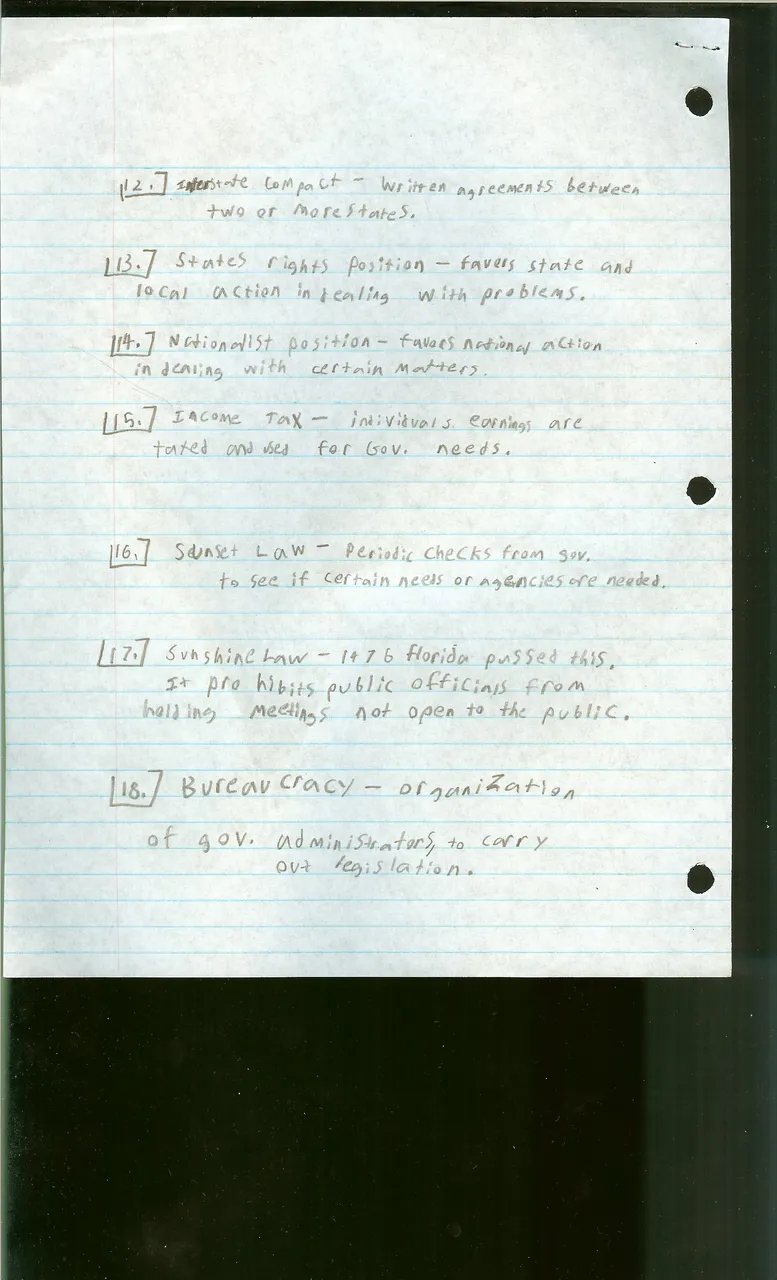 12. Interstate Compact - Written agreements between
two or more states.
13. States rights position - favers state and
local action in dealing with problems.
14. Nationalist position - favors national action
in dealing with certain matters.
15. Income Tax - individuals earnings are
taxed and used for Gov. needs.
16. Sunset Law - Periodic checks from gov.
to see if certain needs or agencies are needed.
17. Sunshine Law - 1976 florida passed this.
It prohibits public officials from
holding meetings not open to the public.
18. Bureaucracy - organization
of gov. administrators, to carry
out legislation.